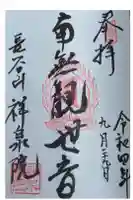 奉拝
令和四年
九月二十九日
南無観世音
祥泉院